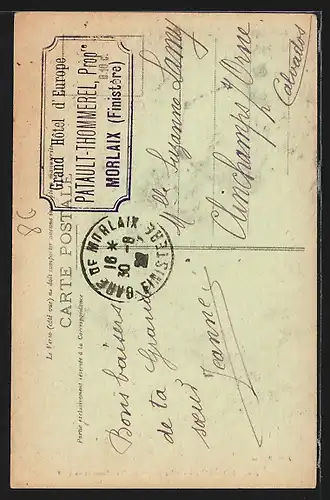 Grand Hôtel d'Europe
PATAULT-THOMMEREL, Propre
MORLAIX (Finistère)
CARTE POSTALE
Partie exclusivement réservée à la Correspondance
GARE DE MORLAIX
FINISTERE
16 *
30 -8
86
Bons baisers
de ta Grande
sœur
Jeanne
Mlle Suzanne Lamy
Clinchamps s/ Orne
Calvados